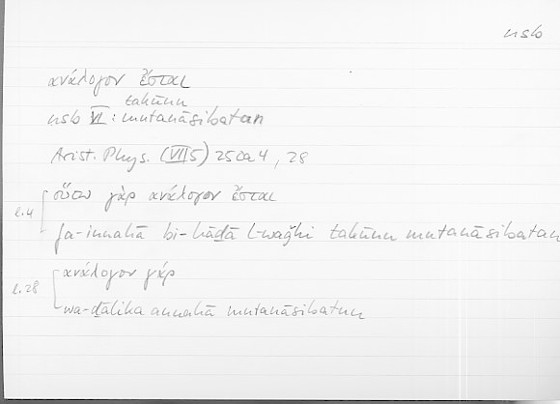 nsb
ἀνάλογον ἔσται
takūnu
nsb VI : mutanāsibatan
Arist. Phys. (VII 5) 250a4, 28
l.4 οὕτω γὰρ ἀνάλογον ἔσται
fa-innahā bi-hāḏā l-waǧhi takūnu mutanāsibatan
l.28 ἀνάλογον γάρ
wa-ḏālika annahā mutanāsibatun